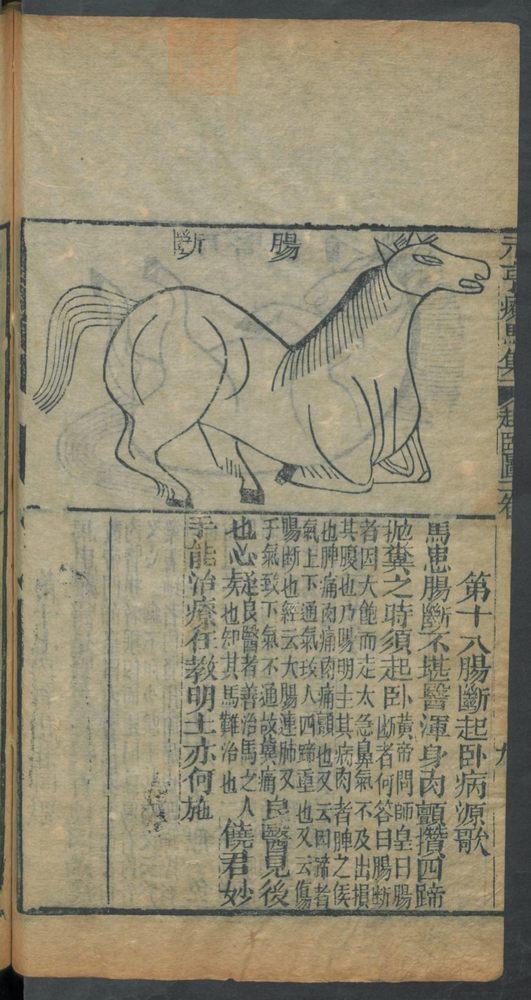 腸斷
元亨療馬集 起臥圖二卷
第十八腸斷起卧病源歌
馬患腸斷不堪醫渾身肉顫攢四蹄
拋糞之時須起卧黃帝問師皇曰腸
斷者何答曰腸斷
者因大飽而走太急臭氣不及出損
其腹也乃陽明主其病肉者脾之候
也脾痛肉痛肉痛顫也又云因蹄者
氣上下通氣攻人四蹄重也又云傷
腸斷也經云大腸連肺又
于氣致下氣不通故糞痛良醫見後
也心疑良醫者善治馬之人
也知其馬難治也饒君妙
手能治療在教明王亦何施
九